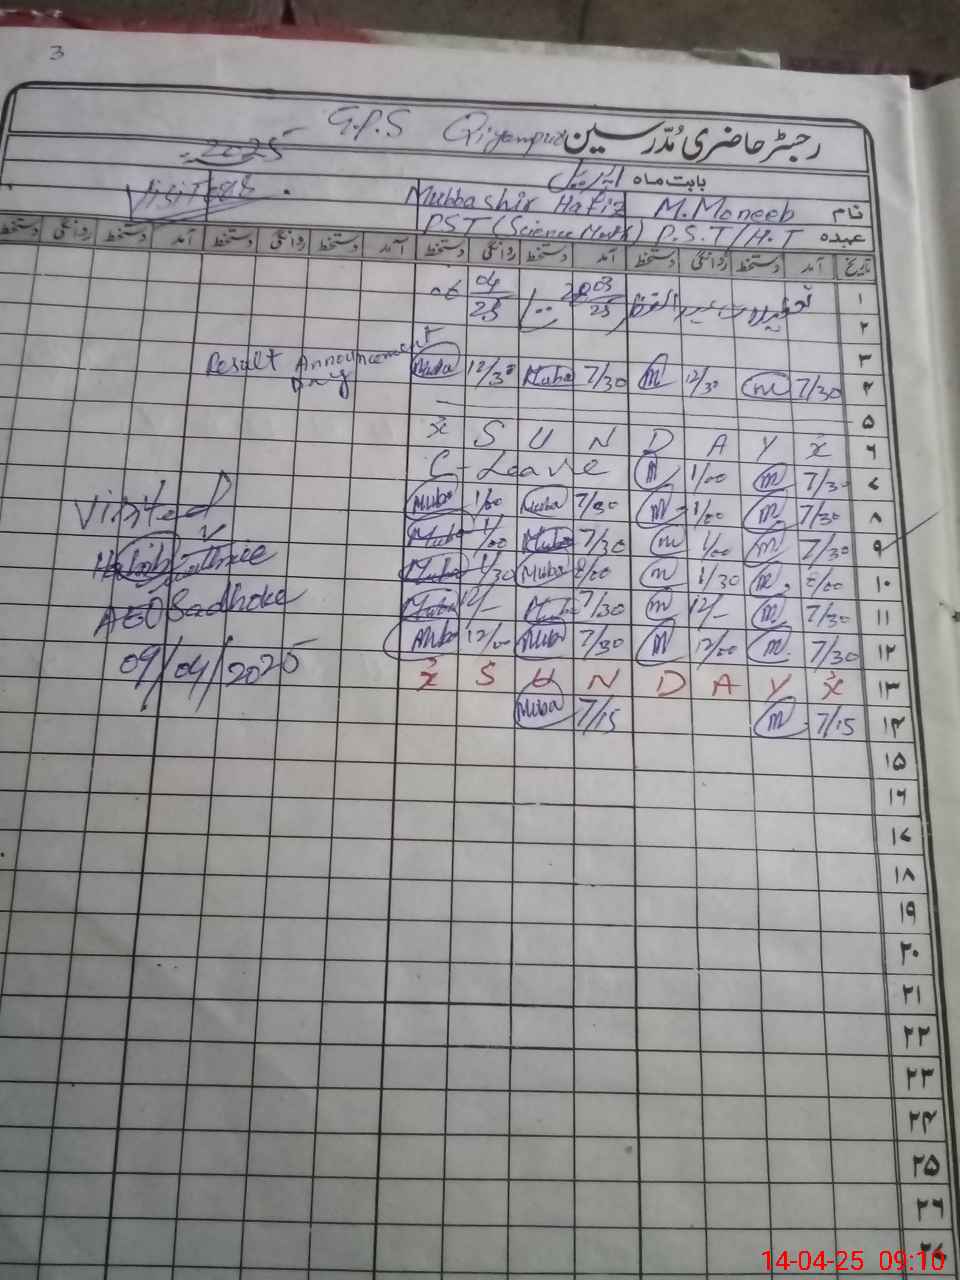 3
G.P.S Qiyampur رجسٹر حاضری مُدّرسین
2025 بابت ماہ اپریل
Visited نام M.Moneeb Mubbashir Hafiz
عہدہ P.S.T/H.T PST (Science Math)
تاریخ آمد دستخط روانگی دستخط آمد دستخط روانگی دستخط آمد دستخط روانگی دستخط آمد دستخط روانگی دستخط
۱ تعطیلات عید الفطر 03/25 04/25
۲
۳
۴ 7/30 m 12/30 m 7/30 Muba 12/30 Muba Result Announcement Day
۵
۶ x S U N D A Y x
۷ 7/30 m 1/00 m C-Leave
۸ 7/30 m 1/00 m 7/30 Muba 1/00 Muba
۹ 7/30 m 1/00 m 7/30 Muba 1/00 Muba
۱۰ 8/00 m 1/30 m 8/00 Muba 1/30 Muba
۱۱ 7/30 m 12/- m 7/30 Muba 12/- Muba
۱۲ 7/30 m 12/00 m 7/30 Muba 12/00 Muba
۱۳ x S U N D A Y x
۱۴ 7/15 m 7/15 Muba
Visited
Habib
AEO Sadhoke
09/04/2025
۱۵
۱۶
۱۷
۱۸
۱۹
۲۰
۲۱
۲۲
۲۳
۲۴
۲۵
۲۶
۲۷
14-04-25 09:10